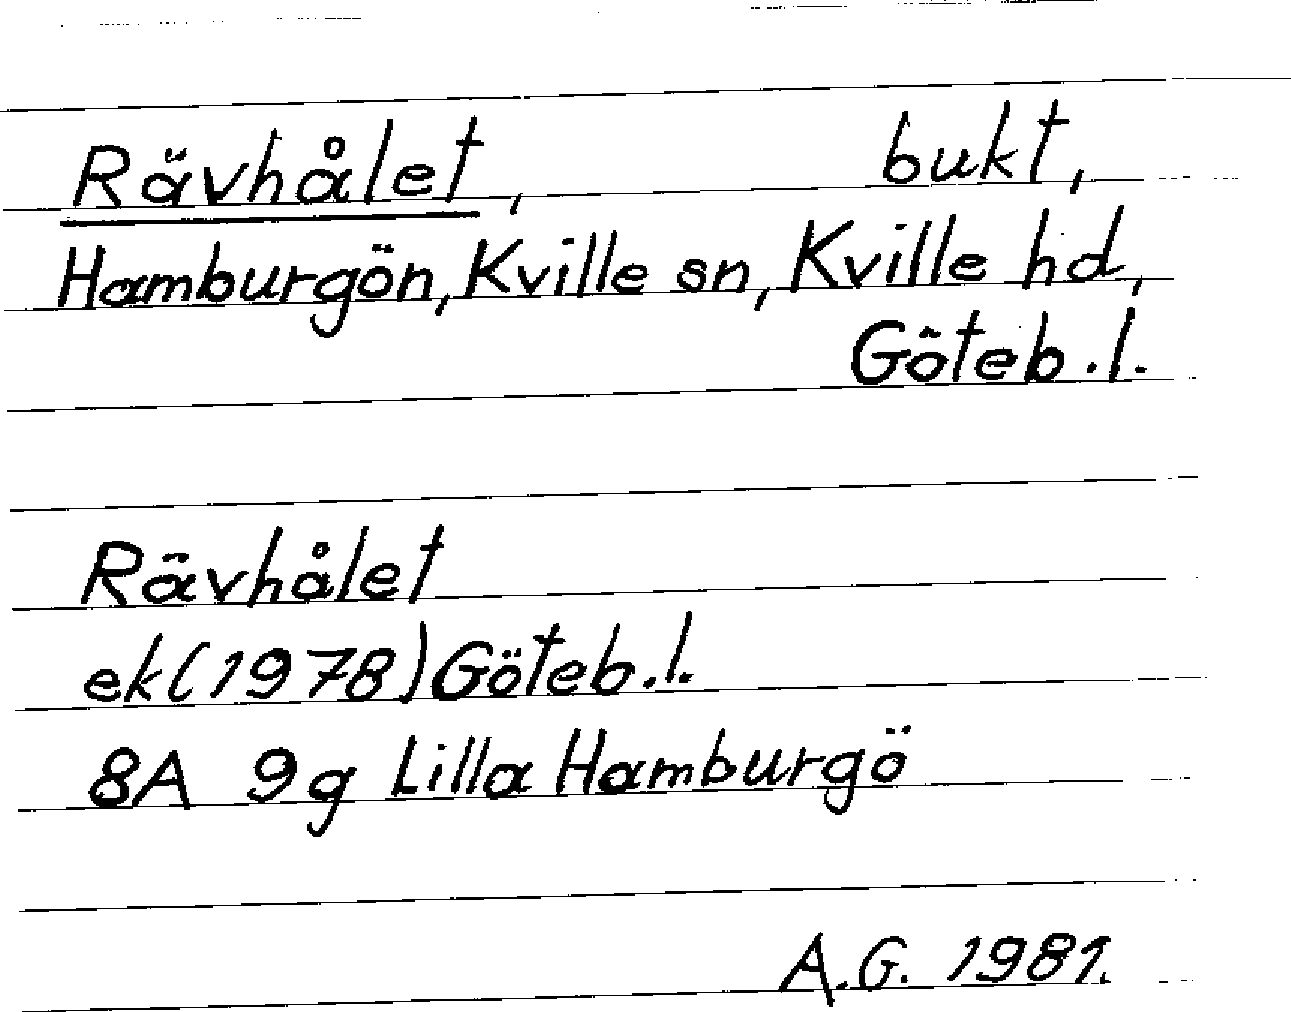 Rävhålet, bukt,
Hamburgön, Kville sn, Kville hd,
Göteb.l.
Rävhålet
ek(1978) Göteb.l.
8A 9g Lilla Hamburgö
A.G. 1981.